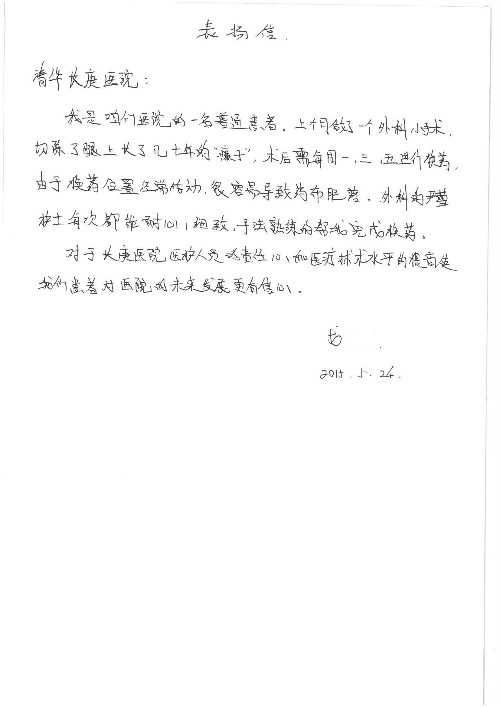 表扬信.
清华长庚医院：
我是咱们医院的一名普通患者，上个月做了一个外科小手术，
切除了腿上长了几十年的"瘊子"，术后需每周一、三、五进行换药，
由于换药位置经常活动，很容易导致药布脱落，外科的尹莹
护士每次都能耐心、细致、手法熟练的帮我完成换药。
对于长庚医院医护人员的责任心、和医疗技术水平的提高使
我们患者对医院的未来发展更有信心、
2015.5.24.